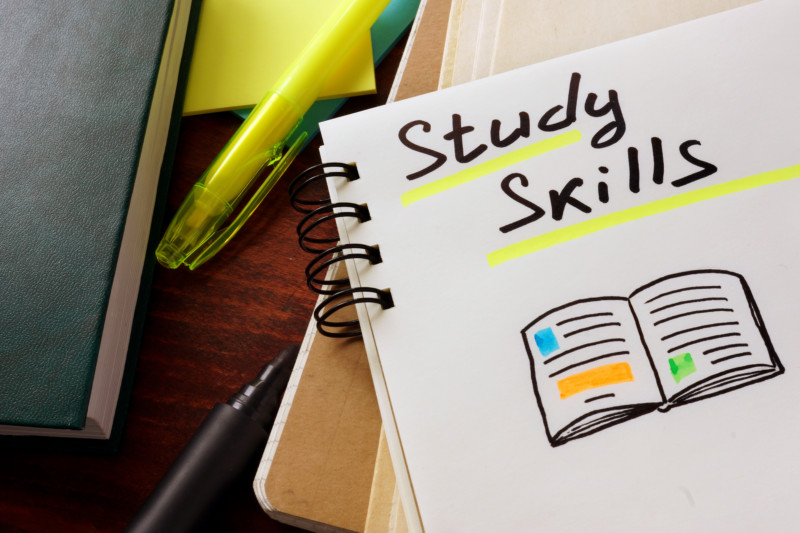 Study
Skills